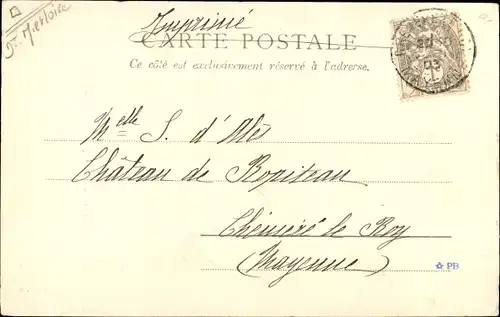 Imprimé
CARTE POSTALE
Ce côté est exclusivement réservé à l'adresse.
Melle S. d'Alès
Château de Ropiteau
Chémeré le Roy
(Mayenne)
PB